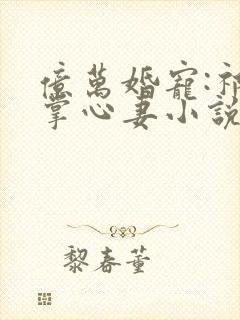 億萬婚寵:祁
掌心妻小說
黎春董